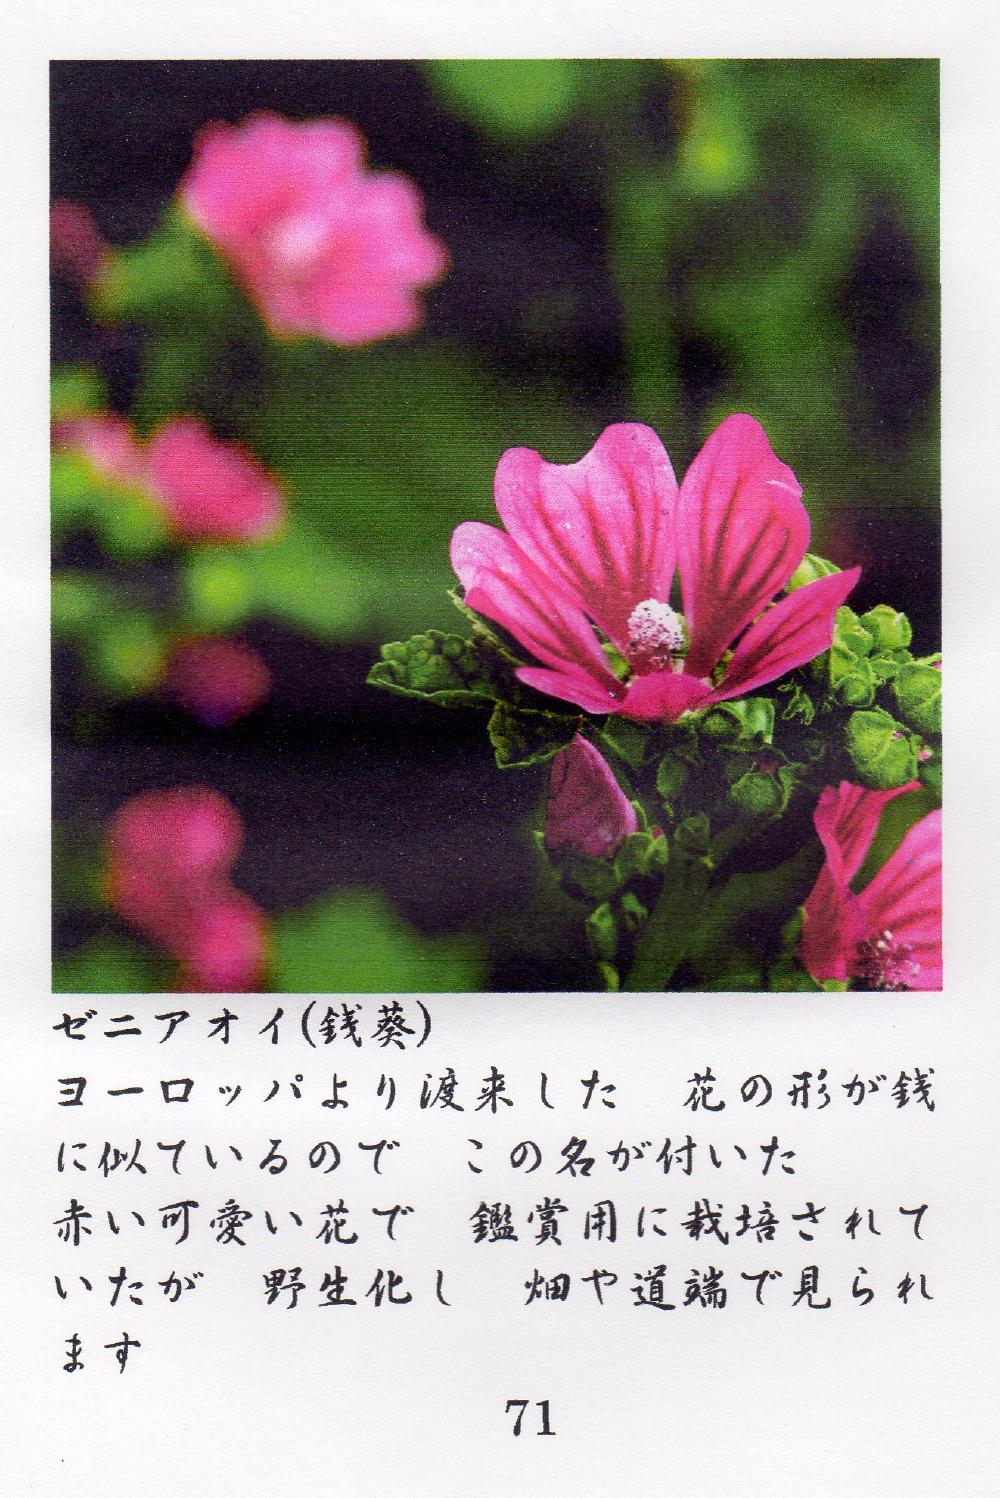 ゼニアオイ(銭葵)
ヨーロッパより渡来した　花の形が銭
に似ているので　この名が付いた
赤い可愛い花で　鑑賞用に栽培されて
いたが　野生化し　畑や道端で見られ
ます
71